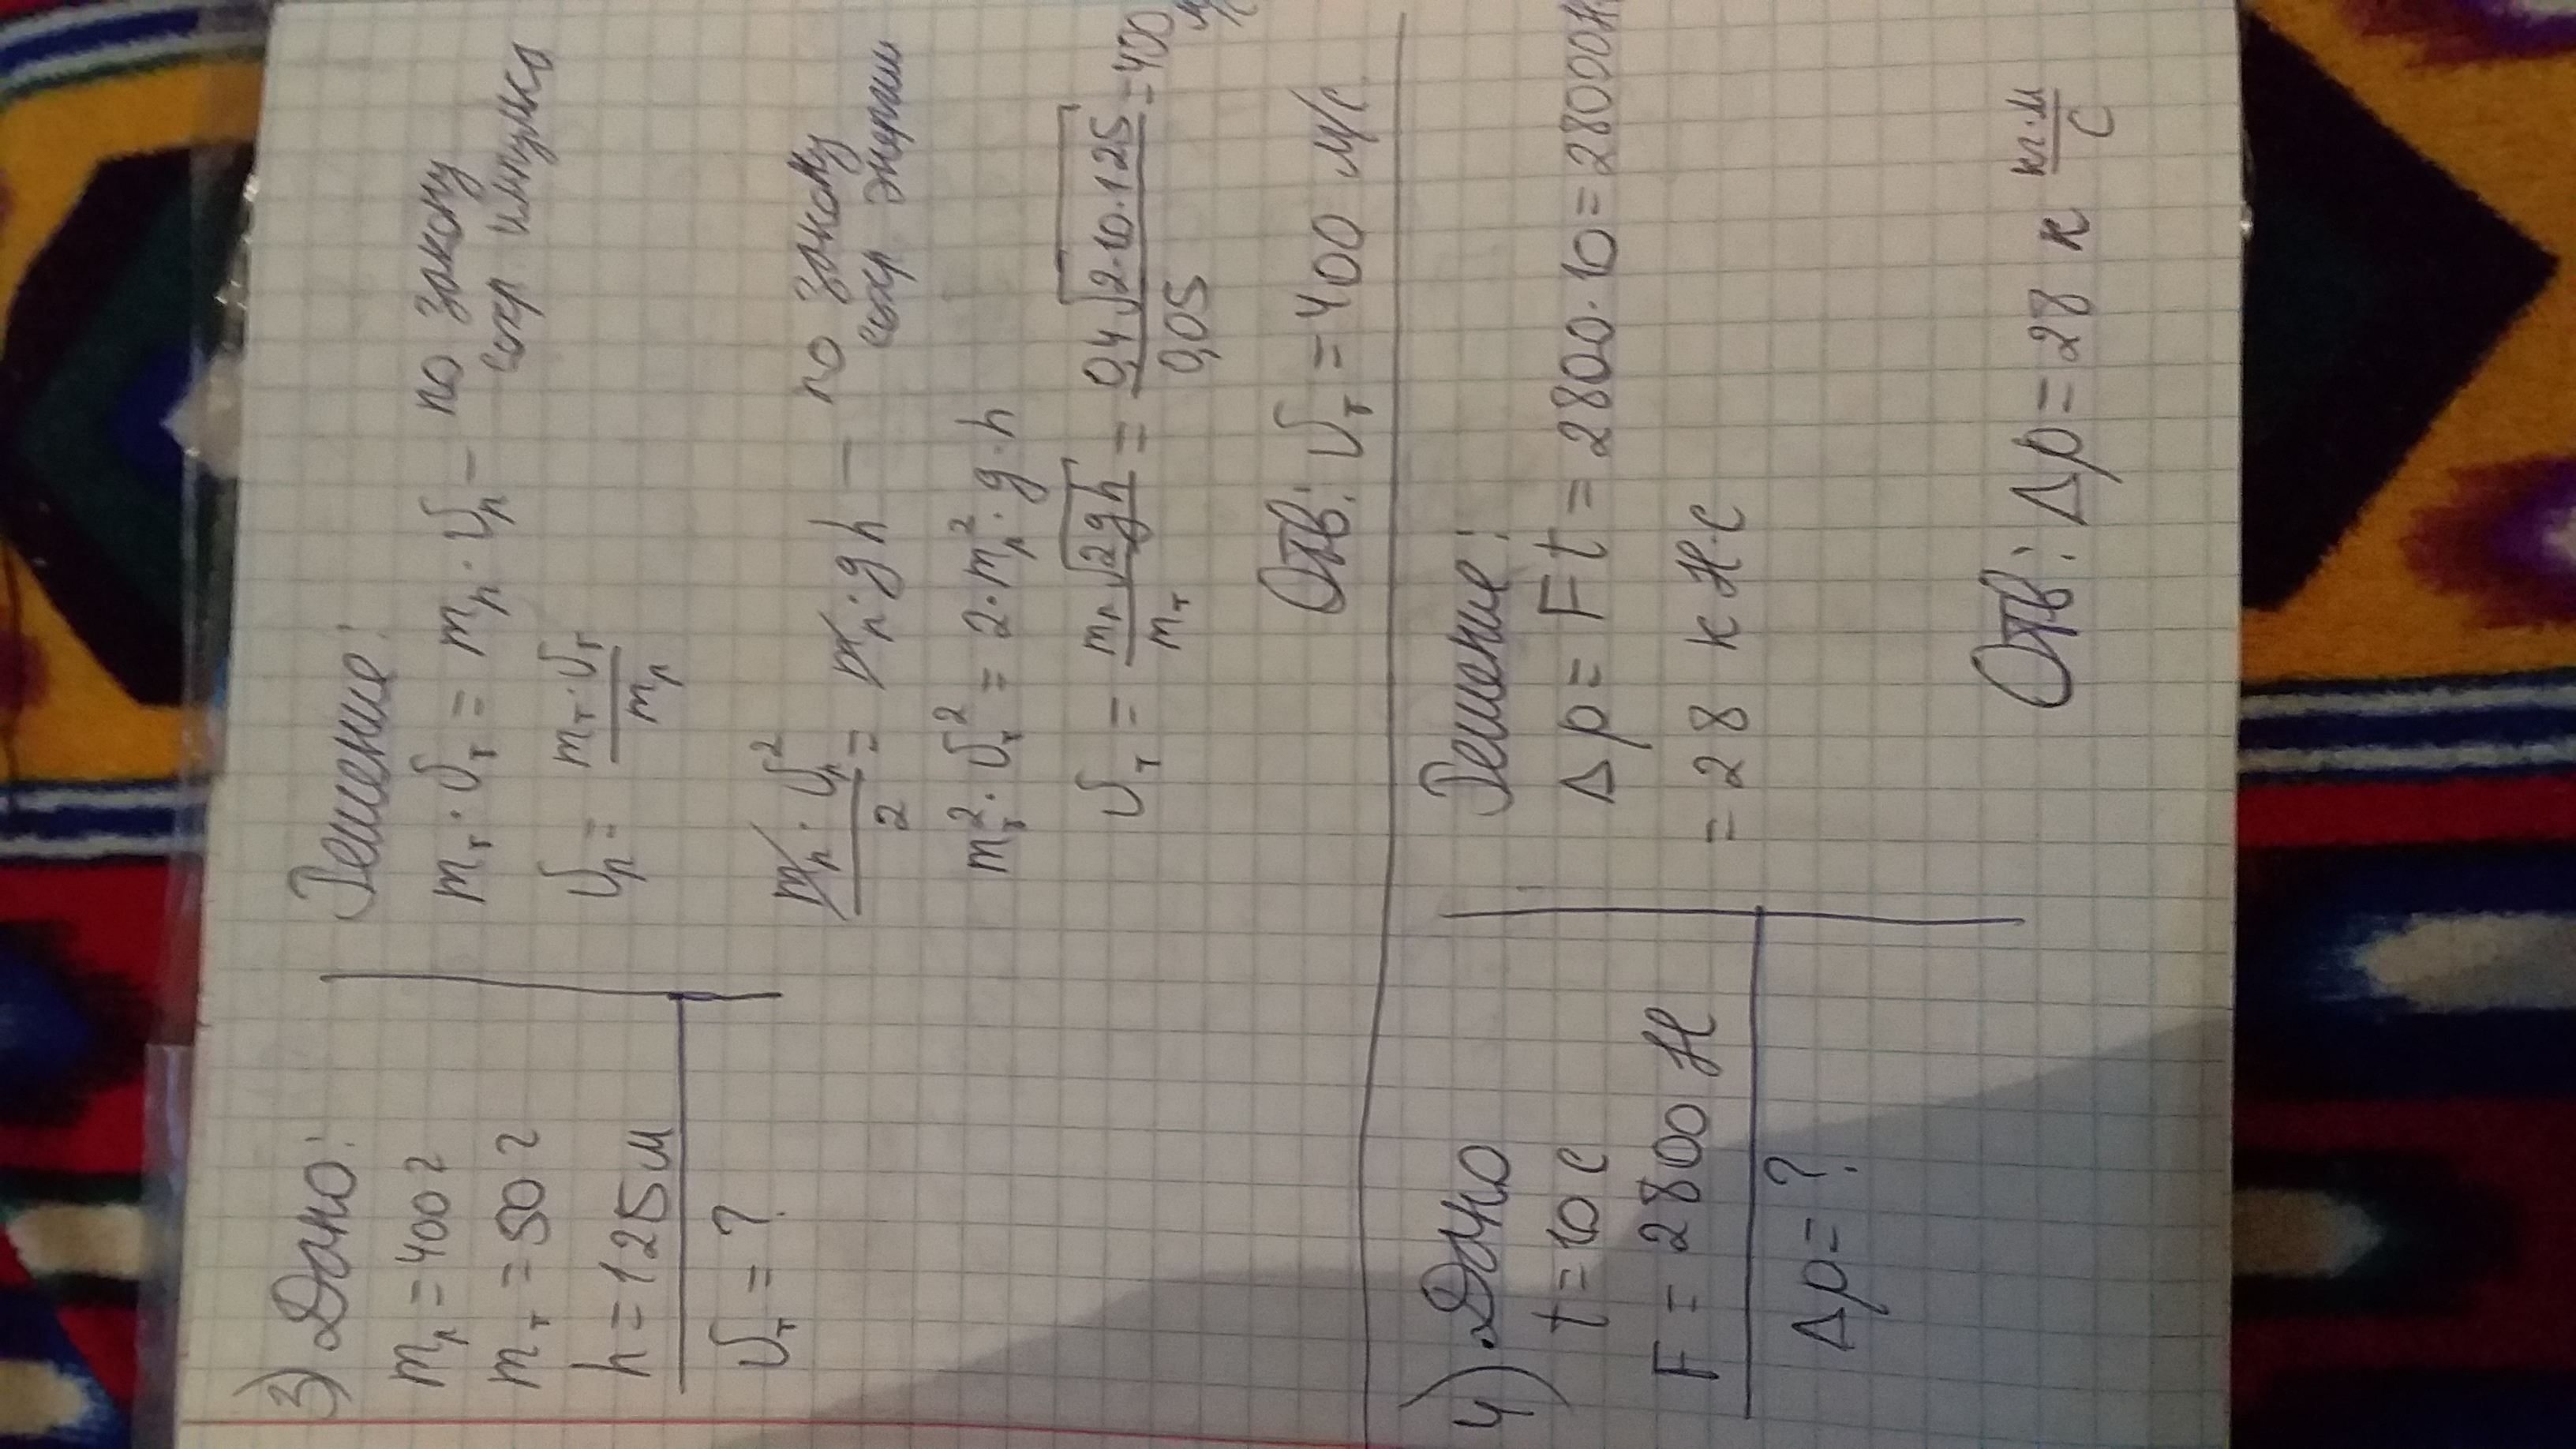 3) Дано:
m_р = 400 г
m_т = 50 г
h = 125 м
υ_т = ?
Решение:
m_т · υ_т = m_р · υ_р – по закону
сохр импульса
υ_р = m_т · υ_т / m_р
m_р · υ_р² / 2 = m_р · g h – по закону
сохр энергии
m_т² · υ_т² = 2 · m_р² · g · h
υ_т = m_р √2gh / m_т = 0,4 √2·10·125 / 0,05 = 400 м/с
Отв: υ_т = 400 м/с
4) Дано
t = 10 с
F = 2800 Н
Δp = ?
Решение:
Δp = F t = 2800 · 10 = 28000 Н
= 28 к Н·с
Отв: Δp = 28 к кг·м / с